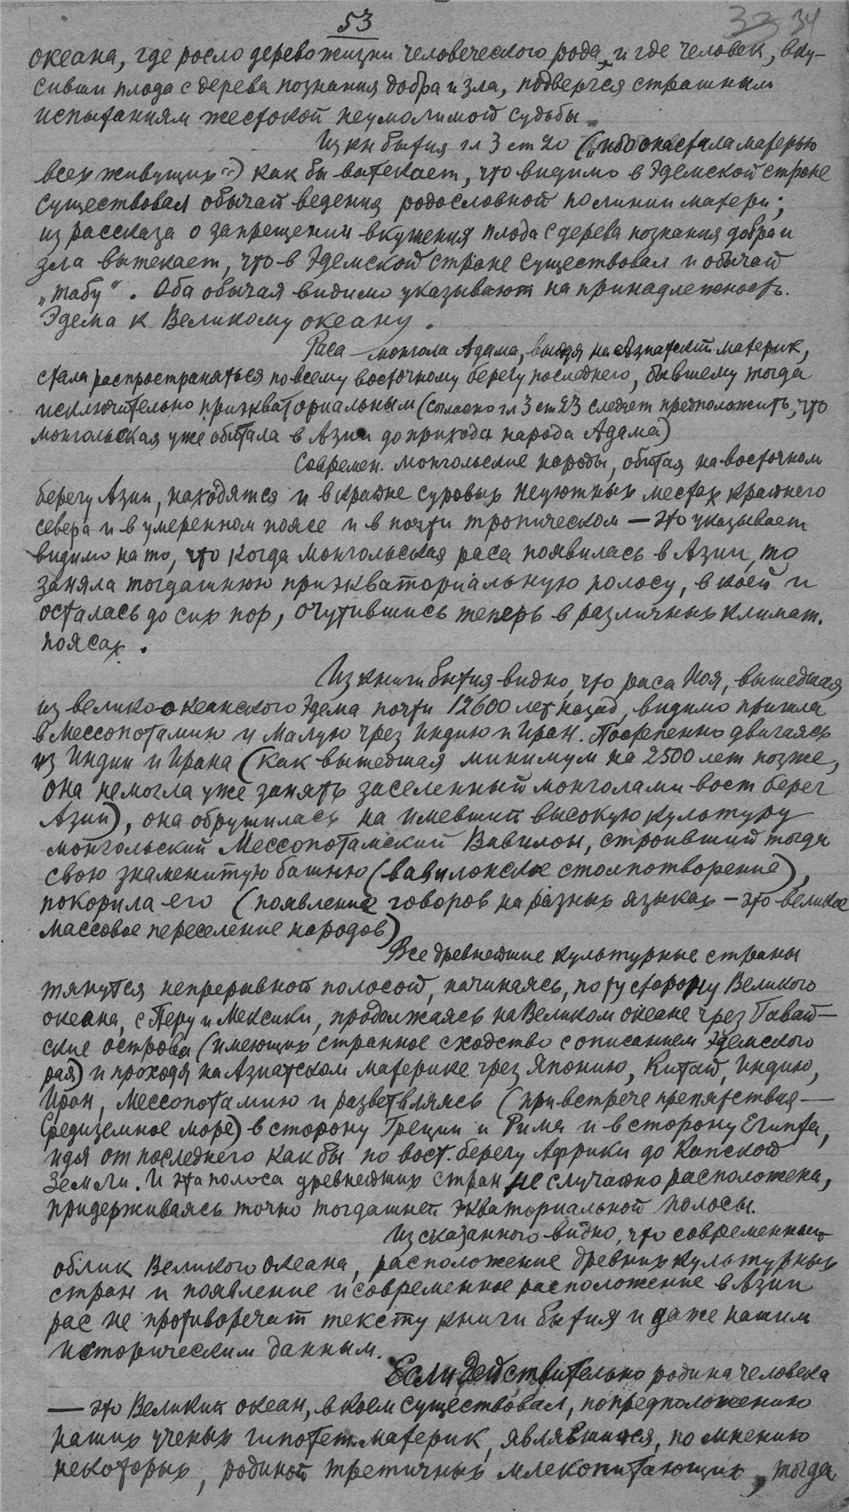 53
33 34
океана, где росло дерево жизни человеческого рода, и где человек, вку-
сивши плода с дерева познания добра и зла, подвергся страшным
испытаниям жестокой неумолимой судьбы.
Из кн бытия гл 3 ст 20 („ибо она стала матерью
всех живущих") как бы вытекает, что видимо в Эдемской стране
существовал обычай ведения родословной по линии матери;
из рассказа о запрещении вкушения плода с дерева познания добра и
зла вытекает, что в Эдемской стране существовал и обычай
„табу". Оба обычая видимо указывают на принадлежность
Эдема к Великому океану.
Раса монгола Адама, выйдя на Азиатский материк,
стала распространяться по всему восточному берегу последнего, бывшему тогда
исключительно приэкваториальным (согласно гл 3 ст 23 следует предположить, что
монгольская уже обитала в Азии до прихода народа Адама)
Современ. монгольские народы, обитая на восточном
берегу Азии, находятся и в крайне суровых неуютных местах крайнего
севера и в умеренном поясе и в почти тропическом — это указывает
видимо на то, что когда монгольская раса появилась в Азии, то
заняла тогдашнюю приэкваториальную полосу, в коей и
осталась до сих пор, очутившись теперь в различных климат.
поясах.
Из книги бытия видно, что раса Ноя, вышедшая
из велико-океанского Эдема почти 12600 лет назад, видимо пришла
в Мессопотамию и Малую чрез Индию и Иран. Постепенно двигаясь
из Индии и Ирана (как вышедшая минимум на 2500 лет позже,
она не могла уже занять заселенный монголами вост берег
Азии), она обрушилась на имевший высокую культуру
монгольский Мессопотамский Вавилон, строивший тогда
свою знаменитую башню (вавилонское столпотворение),
покорила его (появление говоров на разных языках — это великое
массовое переселение народов)
Все древнейшие культурные страны
тянутся непрерывной полосой, начинаясь, по ту сторону Великого
океана, с Перу и Мексики, продолжаясь на Великом океане чрез Гавай-
ские острова (имеющих странное сходство с описанием Эдемского
рая) и проходя на Азиатском материке чрез Японию, Китай, Индию,
Иран, Мессопотамию и разветвляясь (при встрече препятствия —
Средиземное море) в сторону Греции и Рима и в сторону Египта,
идя от последнего как бы по вост. берегу Африки до Капской
Земли. И эта полоса древнейших стран не случайно расположена,
придерживаясь точно тогдашней экваториальной полосы.
Из сказанного видно, что современный
облик Великого океана, расположение древних культурных
стран и появление и современное расположение в Азии
рас не противоречат тексту книги бытия и даже нашим
историческим данным.
Если действительно родина человека
— это Великий океан, в коем существовал, по предположению
наших ученых гипотет. материк, являвшийся, по мнению
некоторых, родиной третичных млекопитающих, тогда